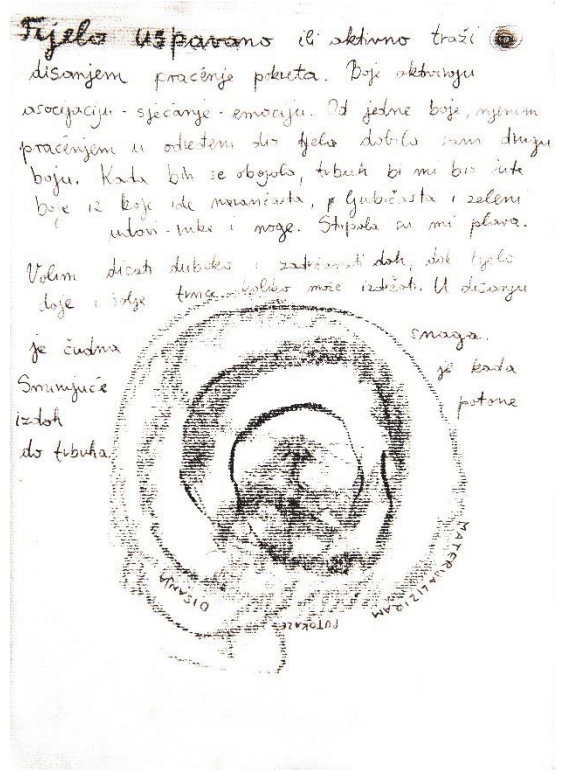 Tijelo uspavano ili aktivno traži
disanjem praćenje pokreta. Boje aktiviraju
asocijaciju - sjećanje - emociju. Od jedne boje, njenim
praćenjem u određeni dio tijela dobila sam drugu
boju. Kada bih se obojala, trbuh bi mi bio žute
boje iz koje ide narančasta, ljubičasta i zeleni
udovi - ruke i noge. Stopala su mi plava.
Volim disati duboko i zadržavati dah, dok tijelo
daje i šalje trnce koliko može izdržati. U disanju
je čudna snaga.
Smirujuće je kada
izdah potone
do trbuha.
MATERIJALIZIRAM
PUTOKAZE
DISANJA